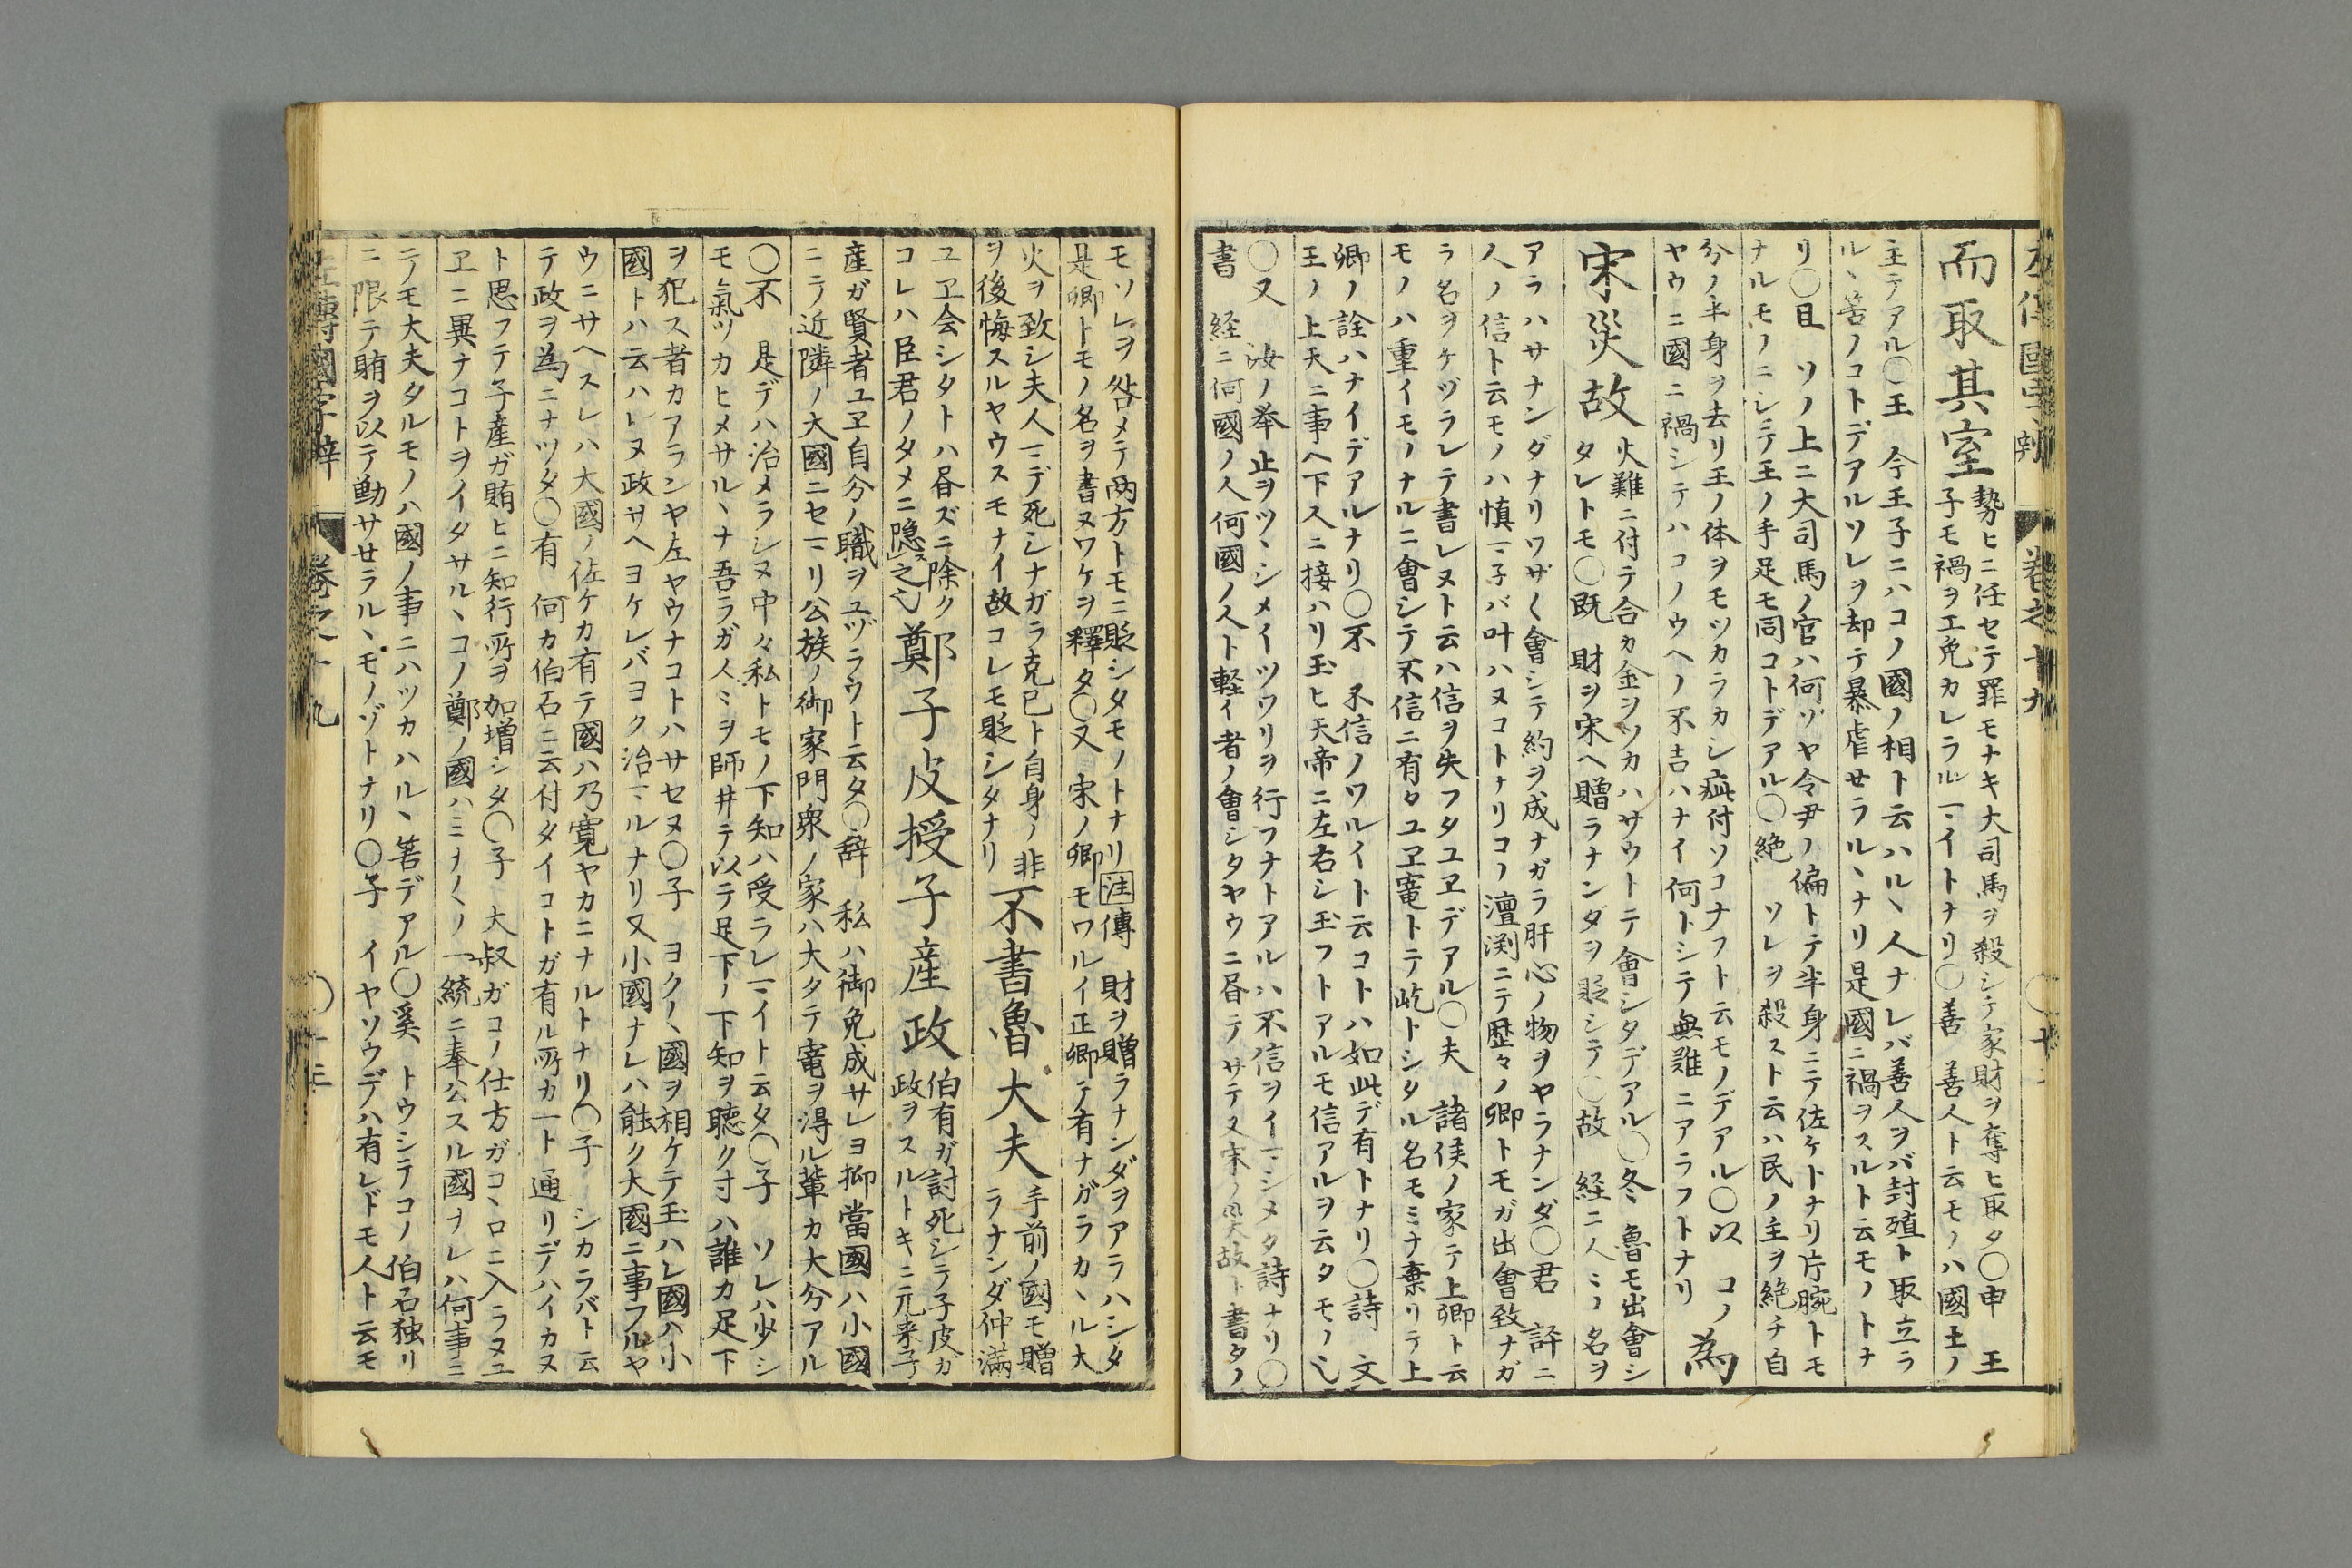 左傳國字辯 卷之十九
而取其室
勢ヒニ任セテ罪モナキ大司馬ヲ殺シテ家財ヲ奪ヒ取タ〇申 王
子モ禍ヲエ免カレラルヽヿイトナリ〇善 善人ト云モノハ國土ノ
主テアル〇王 今王子ニハコノ國ノ相ト云ハルヽ人ナレバ善人ヲバ封殖ト取立ラ
ルヽ筈ノコトデアルソレヲ却テ暴虐セラルヽナリ是國ニ禍ヲスルト云モノトナ
リ〇且 ソノ上ニ大司馬ノ官ハ何ゾヤ令尹ノ偏トテ半身ニテ佐ケトナリ片腕トモ
ナルモノニシテ王ノ手足モ同コトデアル〇絶 ソレヲ殺スト云ハ民ノ主ヲ絶チ自
分ノ半身ヲ去リ王ノ体ヲモツカラカシ疵付ソコナフト云モノデアル〇以 コノ
ヤウニ國ニ禍シテハコノウヘノ不吉ハナイ何トシテ無難ニアラフトナリ
為
宋災故
火難ニ付テ合カ金ヲツカハサウトテ會シタデアル〇冬 魯モ出會シ
タレトモ〇既 財ヲ宋ヘ贈ラナンダヲ貶シテ〇故 経ニ人ミノ名ヲ
アラハサナンダナリワザ〱會シテ約ヲ成ナガラ肝心ノ物ヲヤラナンダ〇君 評ニ
人ノ信ト云モノハ慎マ子バ叶ハヌコトナリコノ澶渕ニテ歴々ノ卿トモガ出會致ナガ
ラ名ヲケヅラレテ書レヌト云ハ信ヲ失フタユヱデアル〇夫 諸侯ノ家テ上卿ト云
モノハ重イモノナルニ會シテ不信ニ有タユヱ寵トテ屹トシタル名モミナ棄リテ上
卿ノ詮ハナイデアルナリ〇不 不信ノワルイト云コトハ如此デ有トナリ〇詩 文
王ノ上天ニ事ヘ下スニ接ハリ玉ヒ天帝ニ左右シ玉フトアルモ信アルヲ云タモノ也
〇又 汝ノ挙止ヲツヽシメイツワリヲ行フナトアルハ不信ヲイマシメタ詩ナリ〇
書 経ニ何國ノ人何國ノ人ト軽イ者ノ會シタヤウニ昏テサテ又宋ノ災故ト書タノ
モソレヲ咎メテ両方トモニ貶シタモノトナリ注傳 財ヲ贈ラナンダヲアラハシタ
是卿トモノ名ヲ書ヌワケヲ釋タ〇又 宋ノ卿モワルイ正卿テ有ナガラカヽル大
火ヲ致シ夫人マデ死シナガラ克已ト自身ノ非
ヲ後悔スルヤウスモナイ故コレモ貶シタナリ
不書魯大夫
手前ノ國モ贈
ラナンダ仲満
ユヱ会シタトハ昏ズニ除ク
コレハ臣君ノタメニ隠ス之也
鄭子皮授子産政
伯有ガ討死シテ子皮ガ
政ヲスルトキニ元来子
産ガ賢者ユヱ自分ノ職ヲユヅラウト云タ〇辞 私ハ御免成サレヨ抑當國ハ小國
ニテ近隣ノ大國ニセマリ公族ノ御家門衆ノ家ハ大タテ寵ヲ淂ル輩カ大分アル
〇不 是デハ治メラレヌ中々私トモノ下知ハ受ラレマイト云タ〇子 ソレハ少シ
モ氣ヅカヒメサルヽナ吾ラガ人ミヲ師井テ以テ足下ノ下知ヲ聴ク寸ハ誰カ足下
ヲ犯ス者カアランヤ左ヤウナコトハサセヌ〇子 ヨク〱國ヲ相ケテ玉ハレ國ハ小
國トハ云ハレヌ政サヘヨケレバヨク治マルナリ又小國ナレハ能ク大國ニ事フルヤ
ウニサヘスレハ大國ノ佐ケカ有テ國ハ乃寛ヤカニナルトナリ〇子 シカラバト云
テ政ヲ為ニナツタ〇有 何カ伯石ニ云付タイコトガ有ル所カ一ト通リデハイカヌ
ト思フテ子産ガ賄ヒニ知行所ヲ加増シタ〇子 大叔ガコノ仕方ガコヽロニ入ラヌユ
ヱニ異ナコトヲイタサルヽコノ鄭ノ國ハミナ〱ノ一統ニ奉公スル國ナレハ何事ニ
テノモ大夫タルモノハ國ノ事ニハツカハルヽ筈デアル〇奚 トウシテコノ伯石独リ
ニ限テ賄ヲ以テ動サせラルヽモノゾトナリ〇子 イヤソウデハ有レドモ人ト云モ
左傳國字辯 卷之十九 〇十三